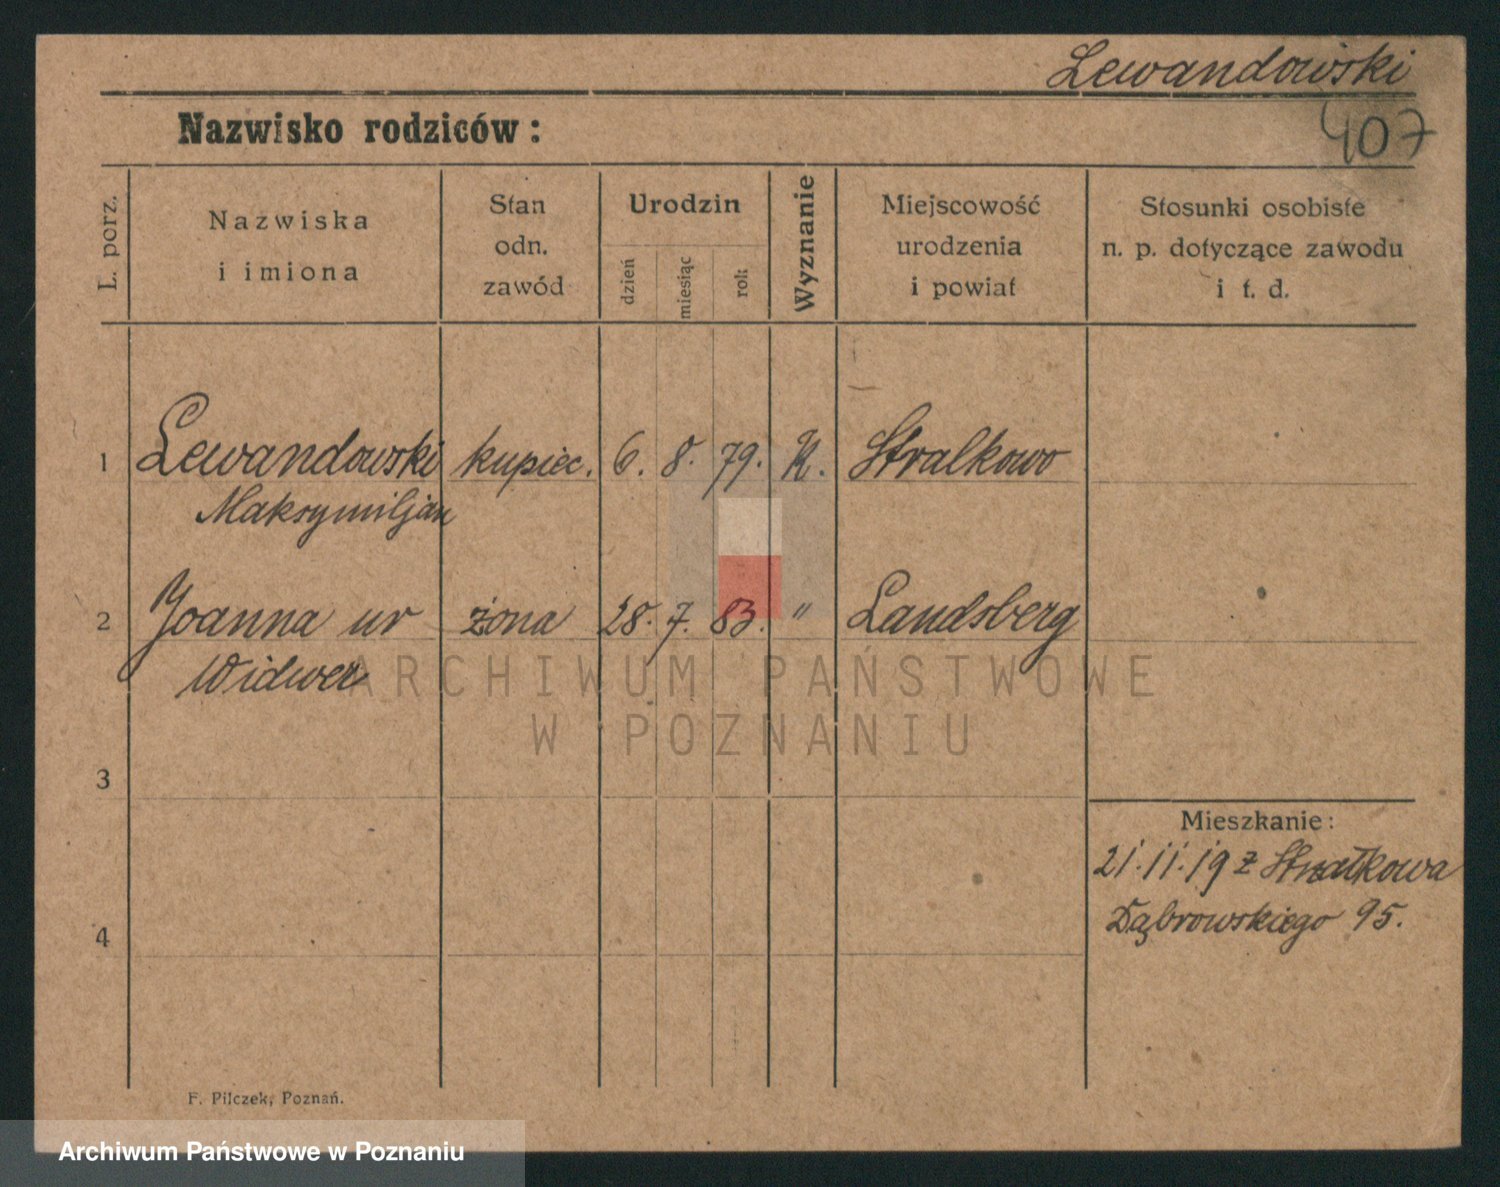 Lewandowski
407
Nazwisko rodziców:
L. porz.
Nazwiska
i imiona
Stan
odn.
zawód
Urodzin
dzień
miesiąc
rok
Wyznanie
Miejscowość
urodzenia
i powiat
Stosunki osobiste
n. p. dotyczące zawodu
i t. d.
1 Lewandowski kupiec. 6. 8. 79. K. Stralkowo
Maksymiljan
2 Joanna ur żona 28. 7. 83. " Landsberg
Widwer
ARCHIWUM PAŃSTWOWE
W POZNANIU
3
Mieszkanie:
21.11.19 z Strałkowa
Dąbrowskiego 95.
4
F. Pilczek, Poznań.
Archiwum Państwowe w Poznaniu